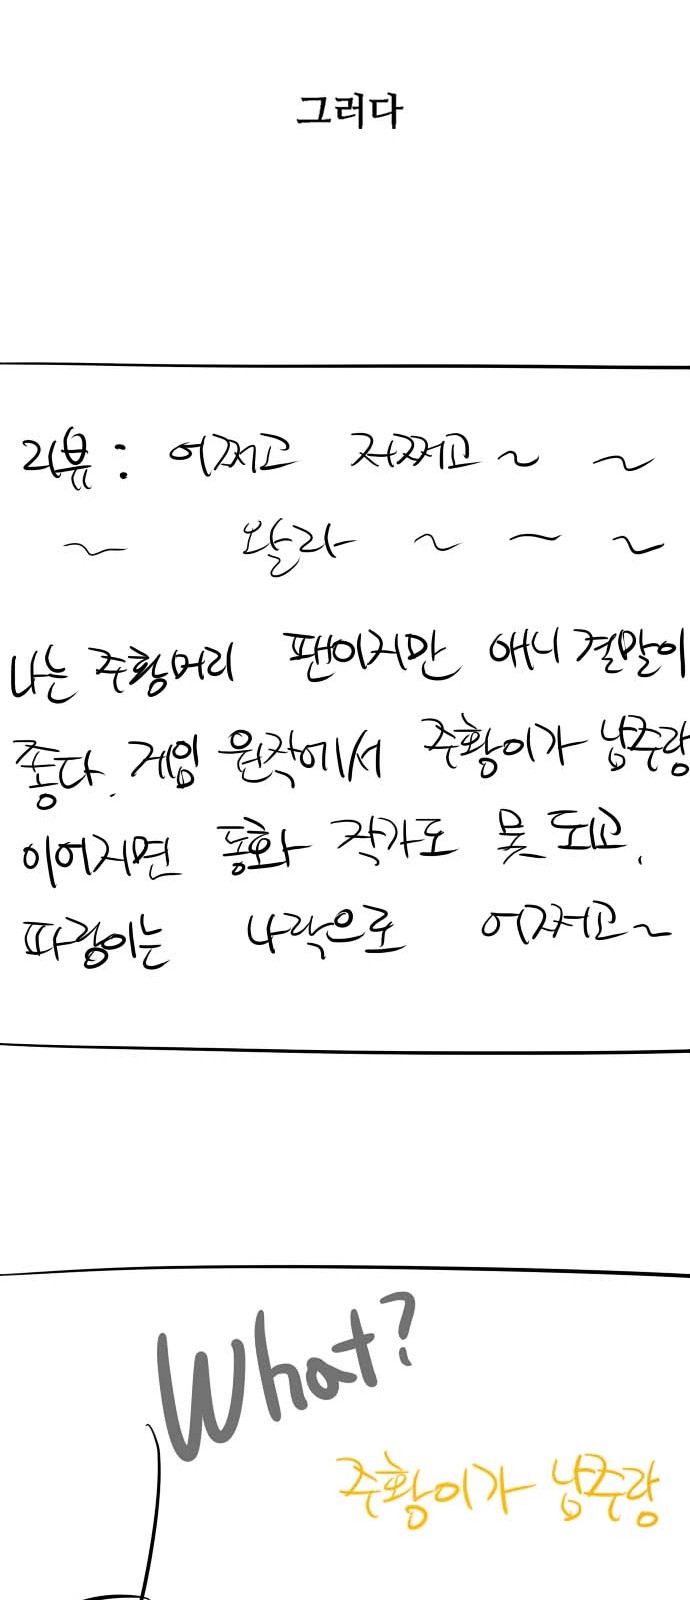 그러다
리뷰 : 어쩌고 저쩌고 ~ ~
~ 왈라 ~ ~ ~
나는 주황머리 팬이지만 애니 결말이
좋다. 게임 원작에서 주황이가 남주랑
이어지면 동화 작가도 못 되고.
파랑이는 나락으로 어쩌고~
What?
주황이가 남주랑